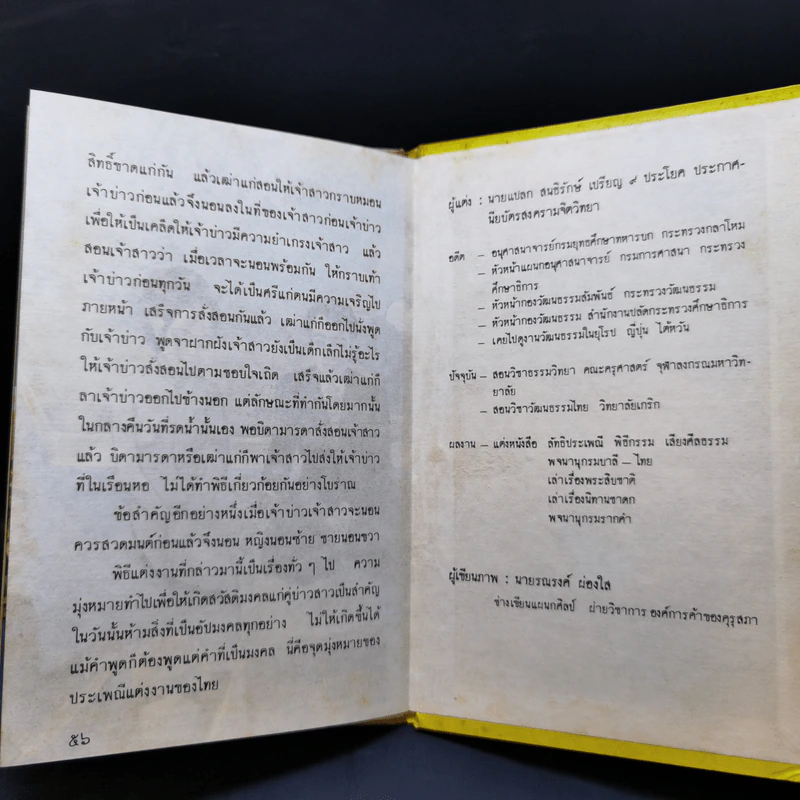 สิทธิ์ขาดแก่กัน แล้วเฒ่าแก่สอนให้เจ้าสาวกราบหมอน
เจ้าบ่าวก่อนแล้วจึงนอนลงในที่ของเจ้าสาวก่อนเจ้าบ่าว
เพื่อให้เป็นเคล็ดให้เจ้าบ่าวมีความยำเกรงเจ้าสาว แล้ว
สอนเจ้าสาวว่า เมื่อเวลาจะนอนพร้อมกัน ให้กราบเท้า
เจ้าบ่าวก่อนทุกวัน จะได้เป็นศรีแก่ตนมีความเจริญไป
ภายหน้า เสร็จการสั่งสอนกันแล้ว เฒ่าแก่ก็ออกไปนั่งพูด
กับเจ้าบ่าว พูดจาฝากฝังเจ้าสาวยังเป็นเด็กเล็กไม่รู้อะไร
ให้เจ้าบ่าวสั่งสอนไปตามชอบใจเถิด เสร็จแล้วเฒ่าแก่ก็
ลาเจ้าบ่าวออกไปข้างนอก แต่ลักษณะที่ทำกันโดยมากนั้น
ในกลางคืนวันที่รดน้ำนั้นเอง พอบิดามารดาสั่งสอนเจ้าสาว
แล้ว บิดามารดาหรือเฒ่าแก่ก็พาเจ้าสาวไปส่งให้เจ้าบ่าว
ที่ในเรือนหอ ไม่ได้ทำพิธีเกี่ยวก้อยกันอย่างโบราณ
ข้อสำคัญอีกอย่างหนึ่งเมื่อเจ้าบ่าวเจ้าสาวจะนอน
ควรสวดมนต์ก่อนแล้วจึงนอน หญิงนอนซ้าย ชายนอนขวา
พิธีแต่งงานที่กล่าวมานี้เป็นเรื่องทั่ว ๆ ไป ความ
มุ่งหมายทำไปเพื่อให้เกิดสวัสดิมงคลแก่คู่บ่าวสาวเป็นสำคัญ
ในวันนั้นห้ามสิ่งที่เป็นอัปมงคลทุกอย่าง ไม่ให้เกิดขึ้นได้
แม้คำพูดก็ต้องพูดแต่คำที่เป็นมงคล นี่คือจุดมุ่งหมายของ
ประเพณีแต่งงานของไทย
๕๖
ผู้แต่ง : นายแปลก สนธิรักษ์ เปรียญ ๙ ประโยค ประกาศ-
นียบัตรสงครามจิตวิทยา
อดีต – อนุศาสนาจารย์กรมยุทธศึกษาทหารบก กระทรวงกลาโหม
– หัวหน้าแผนกอนุศาสนาจารย์ กรมการศาสนา กระทรวง
ศึกษาธิการ
– หัวหน้ากองวัฒนธรรมสัมพันธ์ กระทรวงวัฒนธรรม
– หัวหน้ากองวัฒนธรรม สำนักงานปลัดกระทรวงศึกษาธิการ
– เคยไปดูงานวัฒนธรรมในยุโรป ญี่ปุ่น ไต้หวัน
ปัจจุบัน – สอนวิชาธรรมวิทยา คณะครุศาสตร์ จุฬาลงกรณมหาวิท-
ยาลัย
– สอนวิชาวัฒนธรรมไทย วิทยาลัยเกริก
ผลงาน – แต่งหนังสือ ลัทธิประเพณี พิธีกรรม เสียงศีลธรรม
พจนานุกรมบาลี – ไทย
เล่าเรื่องพระสิบชาติ
เล่าเรื่องนิทานชาดก
พจนานุกรมรากคำ
ผู้เขียนภาพ : นายรณรงค์ ผ่องใส
ช่างเขียนแผนกศิลป์ ฝ่ายวิชาการ องค์การค้าของคุรุสภา